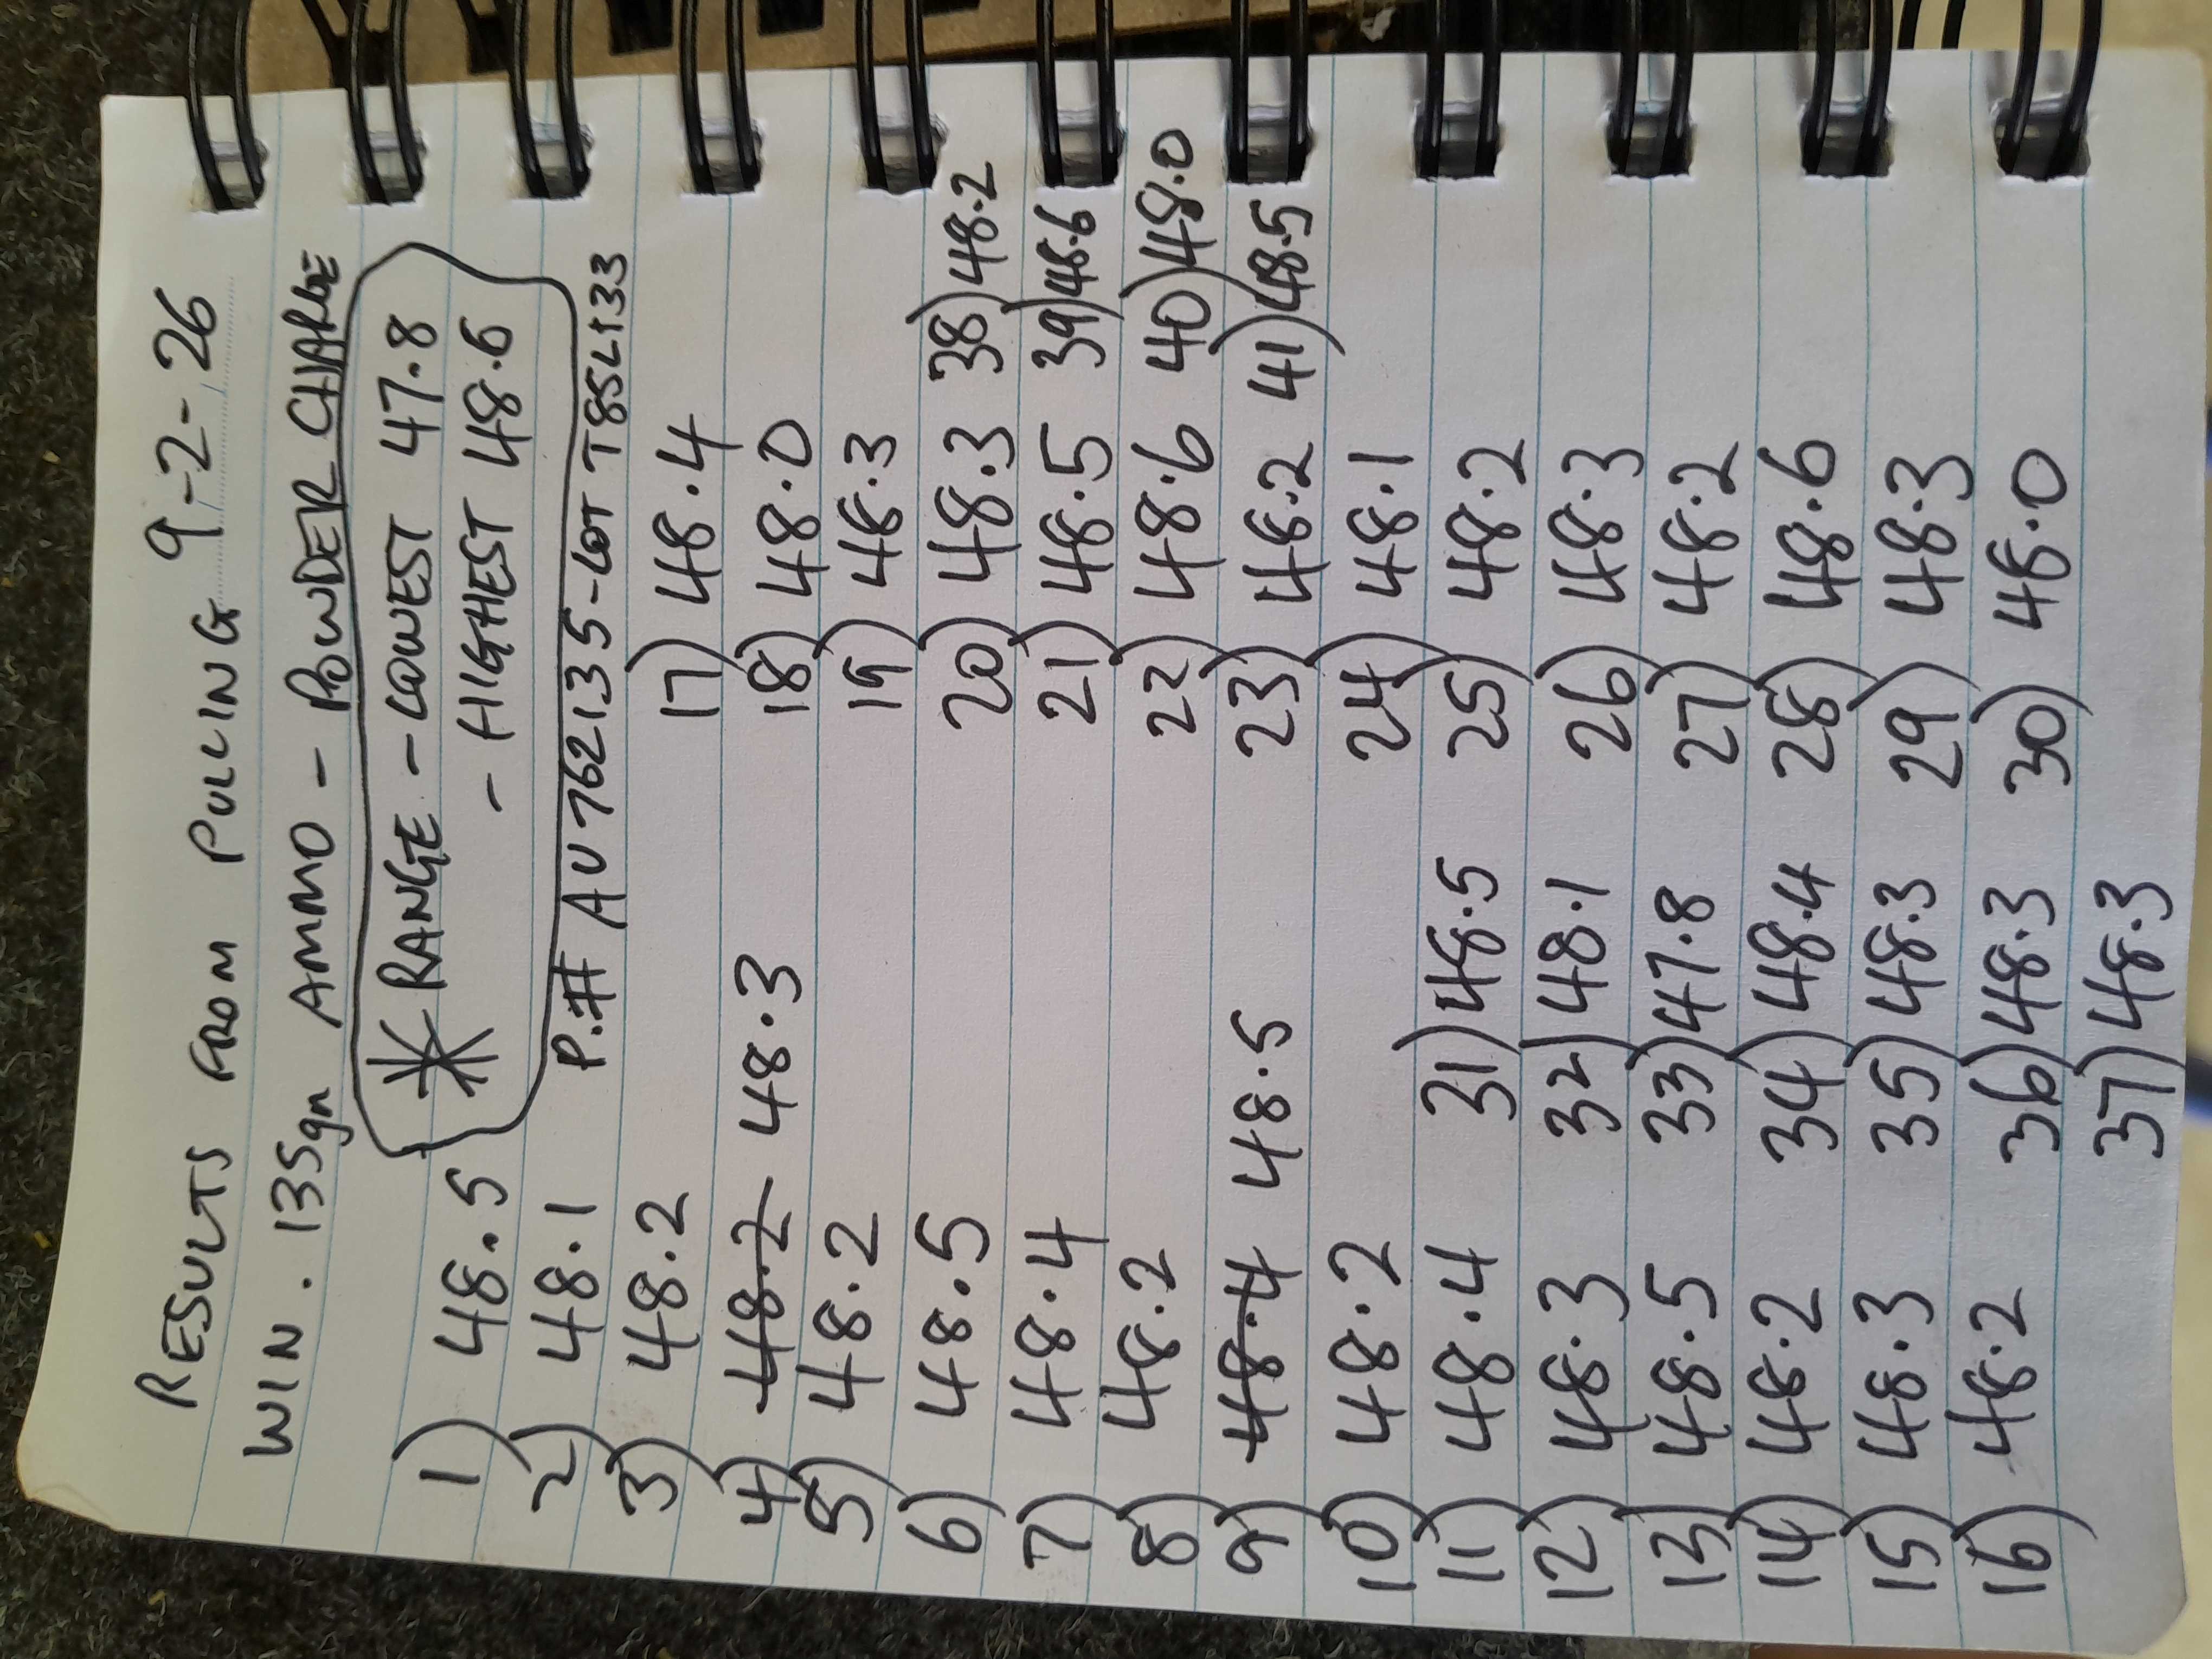 RESULTS FROM PULLING 9-2-26
WIN. 135gn AMMO - POWDER CHARGE
* RANGE - LOWEST 47.8
- HIGHEST 48.6
P.# AU762135-LOT T85L133
1) 48.5
2) 48.1
3) 48.2
4) 48.2 48.3
5) 48.2
6) 48.5
7) 48.4
8) 48.2
9) 48.4 48.5
10) 48.2
11) 48.4
12) 48.3
13) 48.5
14) 48.2
15) 48.3
16) 48.2
31) 48.5
32) 48.1
33) 47.8
34) 48.4
35) 48.3
36) 48.3
37) 48.3
17) 48.4
18) 48.0
19) 48.3
20) 48.3
21) 48.5
22) 48.6
23) 48.2
24) 48.1
25) 48.2
26) 48.3
27) 48.2
28) 48.6
29) 48.3
30) 48.0
38) 48.2
39) 48.6
40) 48.0
41) 48.5